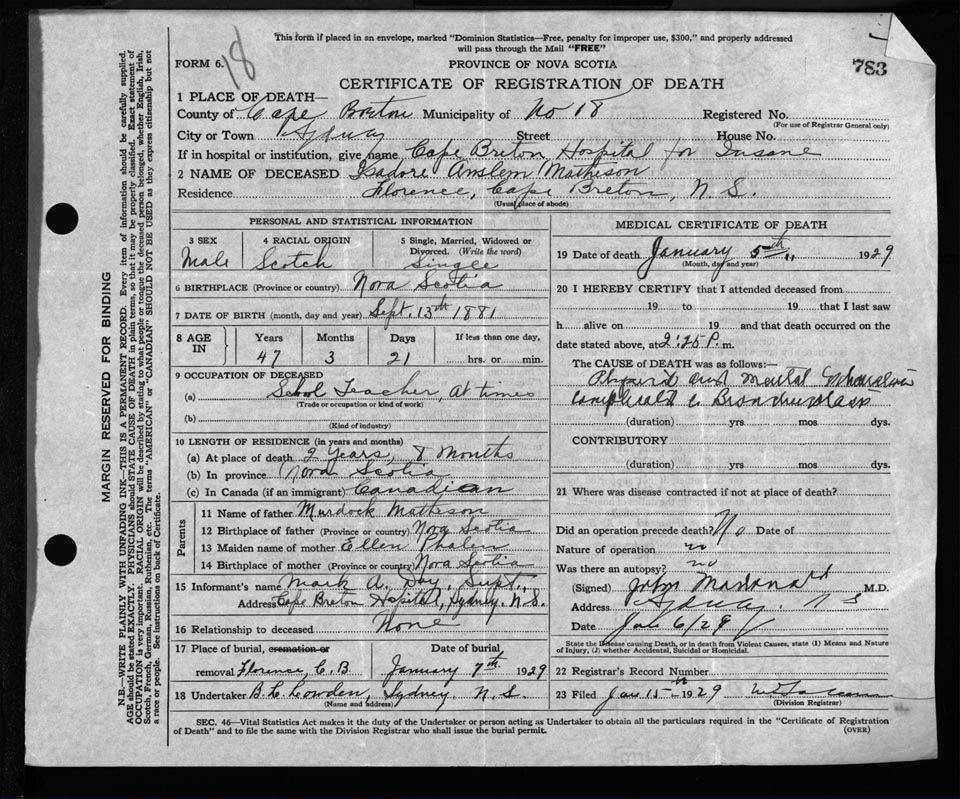 This form if placed in an envelope, marked "Dominion Statistics—Free, penalty for improper use, $300," and properly addressed
will pass through the Mail "FREE"
18
FORM 6.
PROVINCE OF NOVA SCOTIA
783
CERTIFICATE OF REGISTRATION OF DEATH
1 PLACE OF DEATH—
County of Cape Breton Municipality of No 18 Registered No.
(For use of Registrar General only)
City or Town Sydney Street House No.
If in hospital or institution, give name Cape Breton Hospital for Insane
2 NAME OF DECEASED Isadore Anslem Matheson
Residence Florence, Cape Breton, N. S.
(Usual place of abode)
PERSONAL AND STATISTICAL INFORMATION
3 SEX
Male
4 RACIAL ORIGIN
Scotch
5 Single, Married, Widowed or
Divorced. (Write the word)
Single
6 BIRTHPLACE (Province or country) Nova Scotia
7 DATE OF BIRTH (month, day and year) Sept. 15th 1881
8 AGE
IN
Years Months Days If less than one day,
47 3 21 hrs. or min.
9 OCCUPATION OF DECEASED
(a) School Teacher, at times
(Trade or occupation or kind of work)
(b)
(Kind of industry)
10 LENGTH OF RESIDENCE (in years and months)
(a) At place of death 2 Years, 8 Months
(b) In province Nova Scotia
(c) In Canada (if an immigrant) Canadian
Parents
11 Name of father Murdock Matheson
12 Birthplace of father (Province or country) Nova Scotia
13 Maiden name of mother Ellen Phalen
14 Birthplace of mother (Province or country) Nova Scotia
15 Informant's name Mark A. Day, Supt.,
Address Cape Breton Hospital, Sydney. N. S.
16 Relationship to deceased None
17 Place of burial, cremation or
removal Florence, C. B.
Date of burial
January 7th 1929
18 Undertaker B. C. Lowden, Sydney. N. S.
(Name and address)
MEDICAL CERTIFICATE OF DEATH
19 Date of death January 5th, 1929
(Month, day and year)
20 I HEREBY CERTIFY that I attended deceased from
19 to 19 that I last saw
h alive on 19 and that death occurred on the
date stated above, at 2:25 P. m.
The CAUSE OF DEATH was as follows:—
and Mental
(duration) yrs mos dys.
CONTRIBUTORY
(duration) yrs mos dys.
21 Where was disease contracted if not at place of death?
Did an operation precede death? No Date of
Nature of operation no
Was there an autopsy? no
(Signed) John Macdonald M.D.
Address Sydney. N S
Date Jan 6/29
State the Disease causing Death, or in death from Violent Causes, state (1) Means and Nature
of Injury, (2) whether Accidental, Suicidal or Homicidal.
22 Registrar's Record Number
23 Filed Jan 15th 1929
(Division Registrar)
SEC. 46—Vital Statistics Act makes it the duty of the Undertaker or person acting as Undertaker to obtain all the particulars required in the "Certificate of Registration
of Death" and to file the same with the Division Registrar who shall issue the burial permit.
(OVER)
MARGIN RESERVED FOR BINDING
N.B.—WRITE PLAINLY WITH UNFADING INK—THIS IS A PERMANENT RECORD. Every item of information should be carefully supplied.
AGE should be stated EXACTLY. PHYSICIANS should STATE CAUSE OF DEATH in plain terms, so that it may be properly classified. Exact statement of
OCCUPATION is very important. RACIAL ORIGIN will be described by stating to what people or tongue the deceased person belonged, whether English, Irish,
Scotch, French, German, Russian, Ruthenian, etc. The terms "AMERICAN" or "CANADIAN" SHOULD NOT BE USED as they express citizenship but not
a race or people. See instructions on back of Certificate.